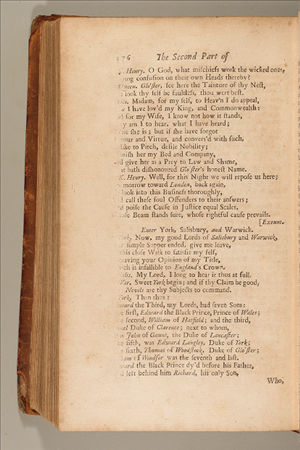 The Second Part of
Henry. O God, what mischiefs work the wicked ones,
ing confusion on their own Heads thereby!
Glo'ster, see here the Tainture of thy Nest,
look thy self be faultless, thou wert best.
Madam, for my self, to Heav'n I do appeal,
I have lov'd my King, and Commonwealth:
for my Wife, I know not how it stands,
am I to hear, what I have heard;
she is; but if she have forgot
and Vertue, and convers'd with such,
like to Pitch, defile Nobility;
nish her my Bed and Company,
give her as a Prey to Law and Shame,
hath dishonoured Glo'ster's honest Name.
Henry. Well, for this Night we will repose us here;
morrow toward London, back again,
look into this Business thoroughly,
call these foul Offenders to their answers;
poise the Cause in Justice equal Scales,
Beam stands sure, whose rightful cause prevails.
[Exeunt.
Enter York, Salisbury, and Warwick.
Now, my good Lords of Salisbury and Warwick,
simple Supper ended, give me leave,
this close Walk to satisfie my self,
craving your Opinion of my Title,
ch is infallible to England's Crown.
My Lord, I long to hear it thus at full.
War. Sweet York begin; and if thy Claim be good,
Nevils are thy Subjects to command.
York. Then thus:
ward the Third, my Lords, had seven Sons:
first, Edward the Black Prince, Prince of Wales;
second, William of Hatfield; and the third,
Duke of Clarence; next to whom,
John of Gaunt, the Duke of Lancaster;
fifth, was Edward Langley, Duke of York;
sixth, Thomas of Woodstock, Duke of Glo'ster;
of Windsor was the seventh and last.
ward the Black Prince dy'd before his Father,
left behind him Richard, his only Son,
Who,